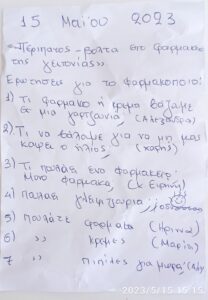 15 Μαΐου 2023
«Περίπατος - βόλτα στο φαρμακείο
της γειτονιάς»
Ερωτήσεις για το φαρμακοποιό:
1) Τι φάρμακο ή κρέμα βάζουμε
σε μια γρατζουνιά; (Αλεξάνδρα)
2) Τι να βάλουμε για να μη μας
κάψει ο ήλιος;
3) Τι πουλάει ένα φαρμακείο;
Μόνο φάρμακα; (κ Ειρήνη)
4) Πουλάει
5 Πουλάτε φάρμακα (Ηρώνα)
6) ,, κρέμες (Μαρία)
7 ,, πιπίλες για μωρά;
2023/5/15 15:15